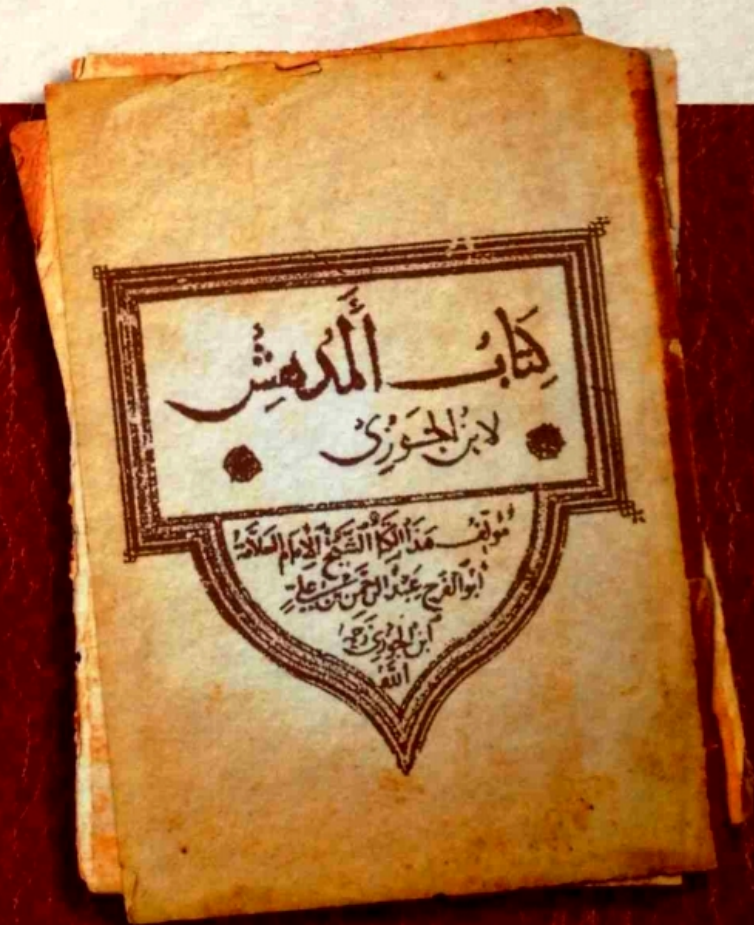 كِتَابُ الْمُدْهِشِ
لابن الجَوْزِي
مؤلف هذا الكتاب الشيخ الإمام العلامة
أبو الفرج عبد الرحمن بن علي
ابن الجوزي رحمه
الله